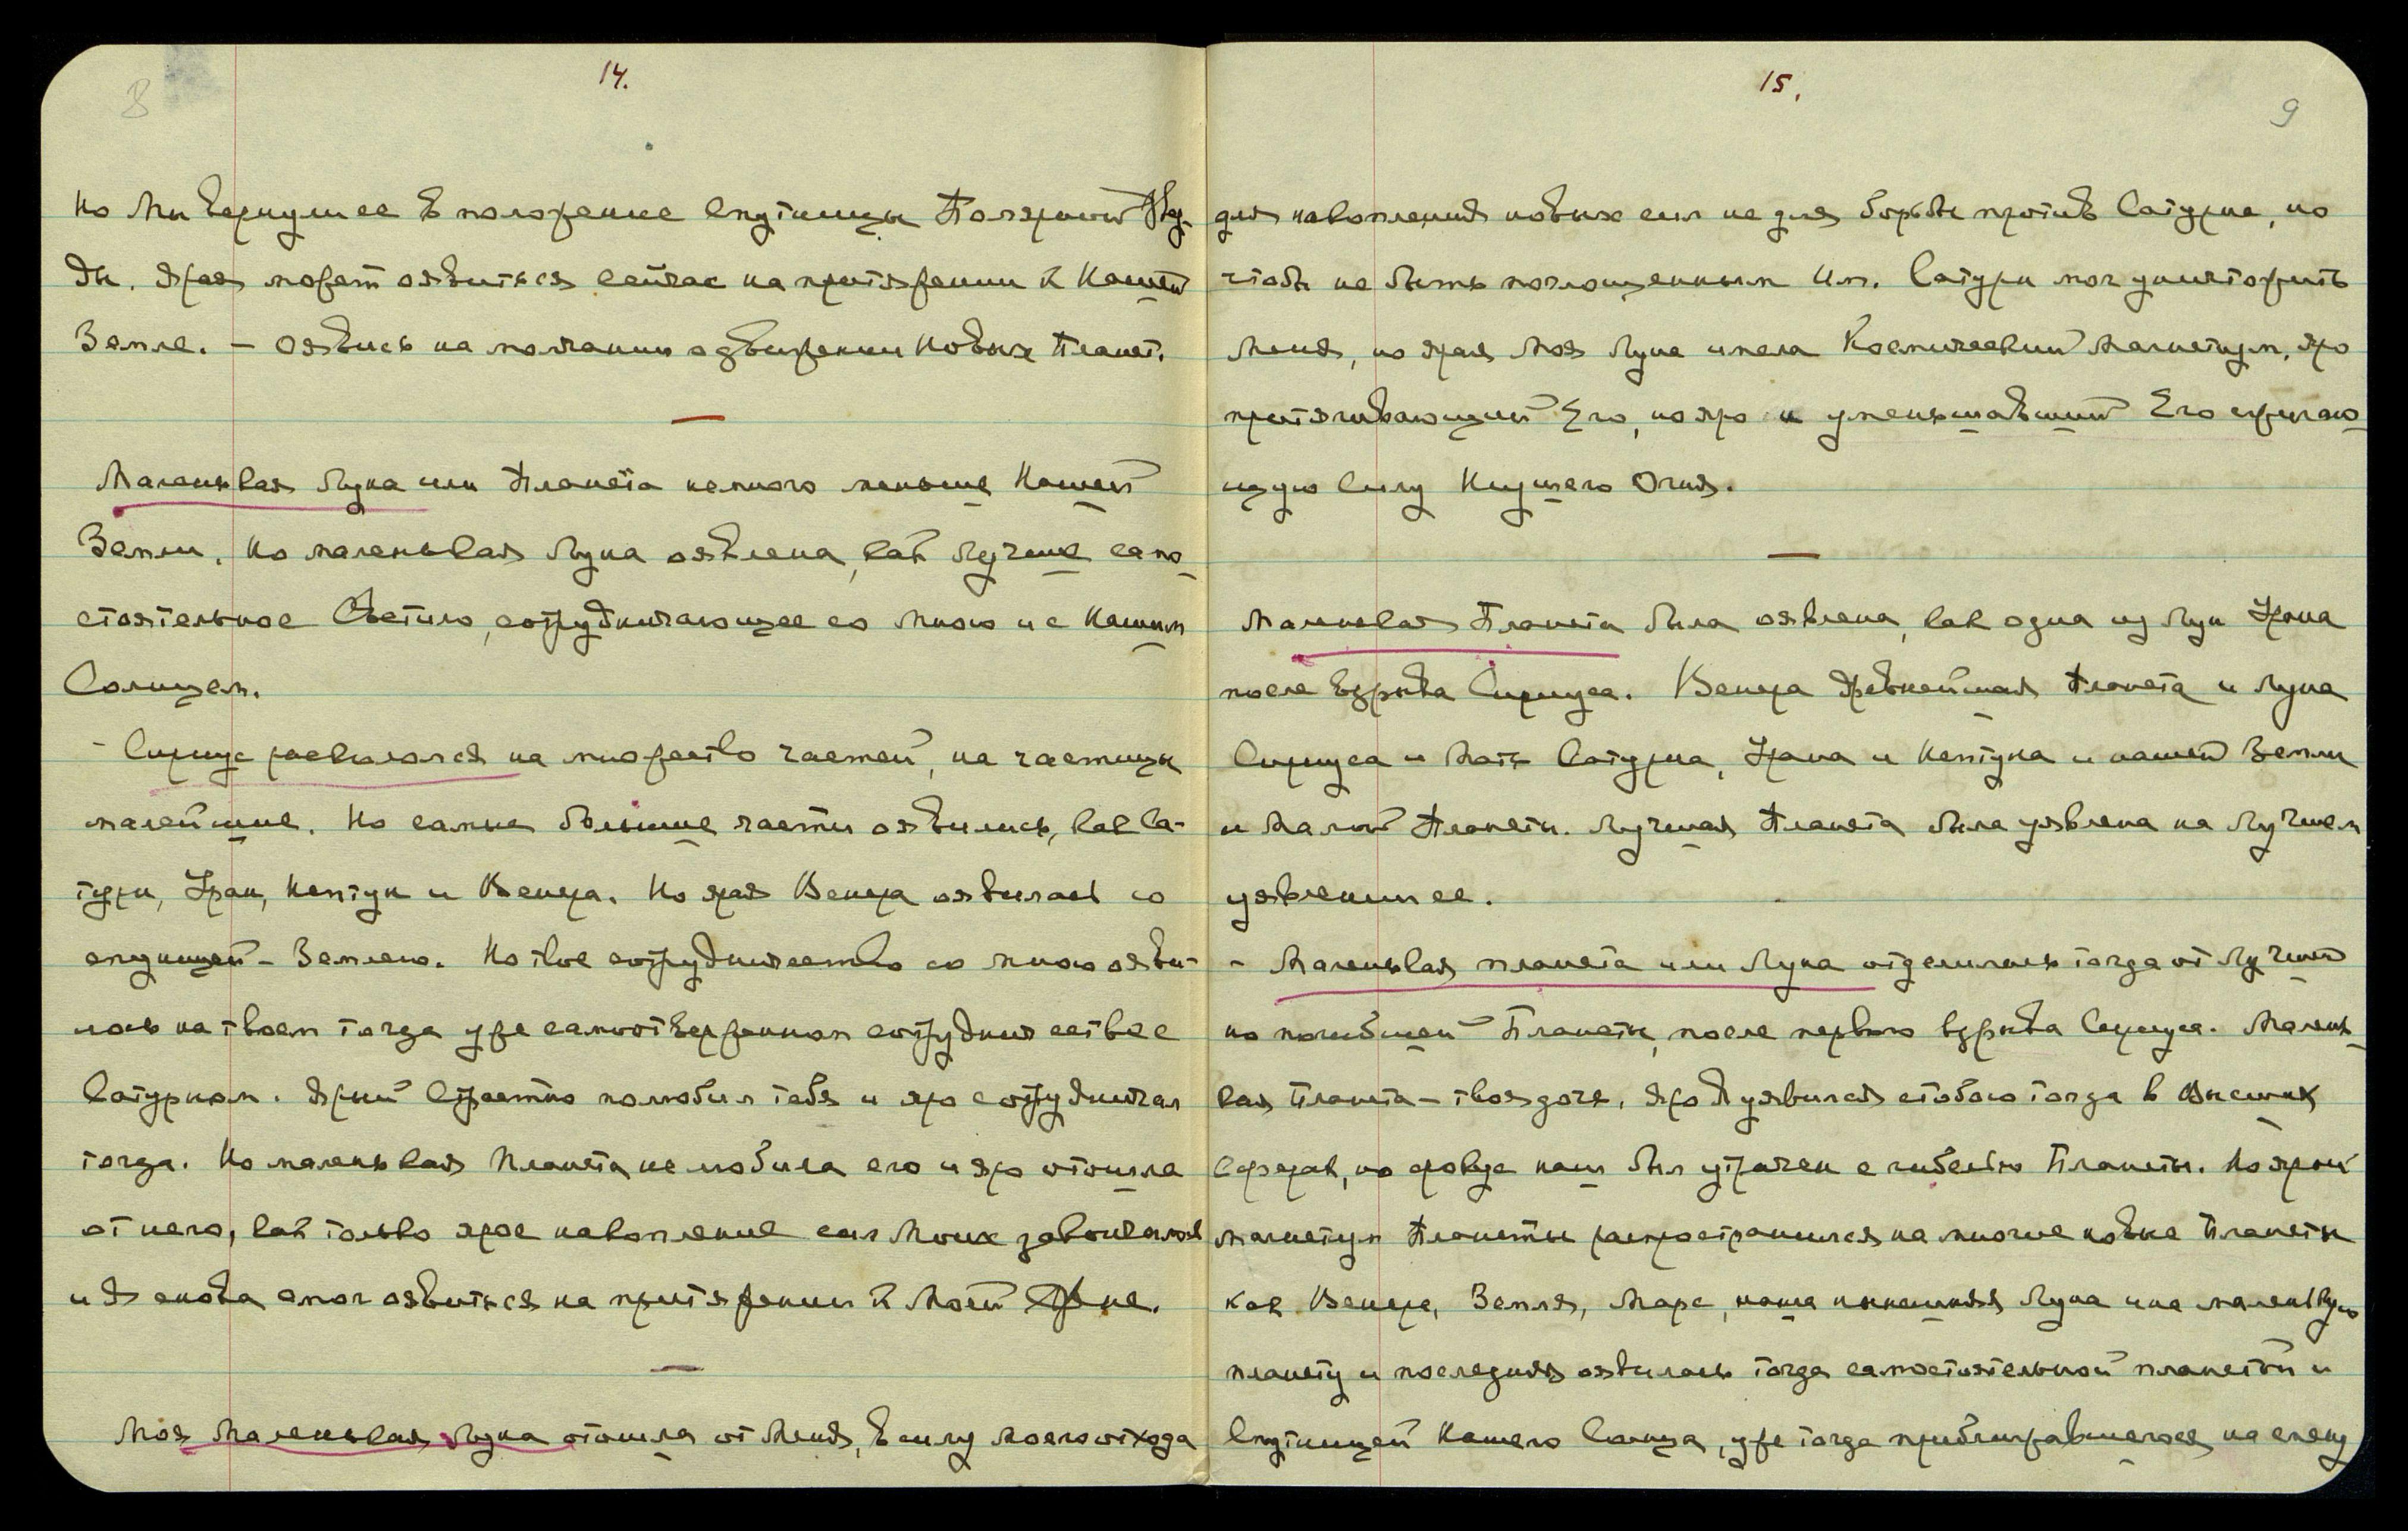 8
14.
Но Мы вернулись в положение спутницы Полярной Звез-
ды. Ярая может оявиться сейчас на притяжении к Нашей
Земле. — Оявись на молчании о движении Новых Планет.
Маленькая Луна или Планета немного меньше Нашей
Земли. Но маленькая Луна оявлена, как Лучшее само-
стоятельное Светило, сотрудничающее со Мною и с Нашим
Солнцем.
- Сириус раскололся на множество частей, на частицы
малейшие. Но самые большие части оявились, как Са-
турн, Уран, Нептун и Венера. Но ярая Венера оявилась со
спутницей - Землею. Но твое сотрудничество со мноюояви-
лось на твоем тогда уже самоотверженном сотрудничестве с
Сатурном. Ярый страстно полюбил тебя и яро сотрудничал
тогда. Но маленькая Планета не любила его и яро отошла
от него, как только ярое накопление сил Моих закончилось
и Я снова смог оявиться на притяжении к Моей
Моя Маленькая Луна отошла от Меня, в силу моего отхода
15.
9
для накопления новых сил не для борьбы против Сатурна, но
чтобы не быть поглощенным Им. Сатурн мог уничтожить
Меня, но ярая Моя Луна имела Космический Магнетизм, яро
притягивающий Его, но яро и уменьшавший Его сжигаю-
щую Силу Низшего Огня.
Маленькая Планета была оявлена, как одна из Лун Урана
после взрыва Сириуса. Венера древнейшая Планета и Луна
Сириуса и Мать Сатурна, Урана и Нептуна и нашей Земли
и Малой Планеты. Лучшая Планета была уявлена на Лучшем
уявлении ее.
- Маленькая планета или Луна отделилась тогда от Лучшей
но погибшей Планеты, после первого взрыва Сириуса. Малень-
кая Планета - твоя дочь. Яро Я уявился с тобою тогда в Высших
Сферах, но фокус наш был утрачен с гибелью Планеты. Но ярый
магнетизм Планеты распространился на многие новые Планеты
как Венера, Земля, Марс, наша нынешняя Луна и на маленькую
планету и последняя оявилась тогда самостоятельной планетой и
Спутницей Нашего Солнца, уже тогда приближавшегося на смену